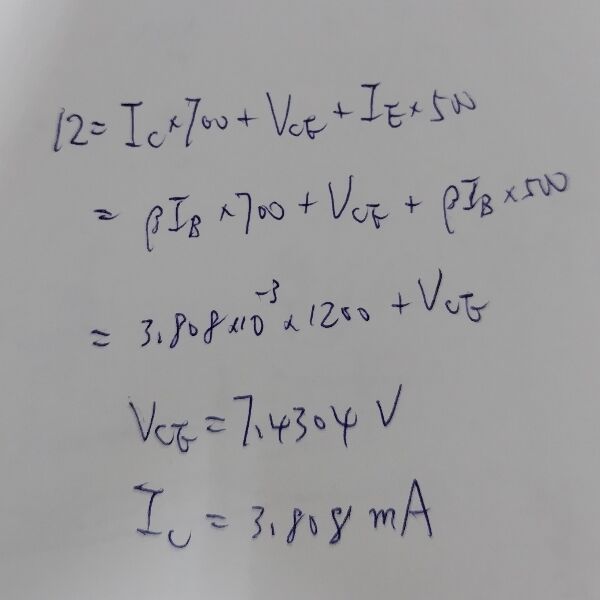 12 = I_C × 700 + V_CE + I_E × 500
= βI_B × 700 + V_CE + βI_B × 500
= 3.808 × 10⁻³ × 1200 + V_CE
V_CE = 7.4304 V
I_C = 3.808 mA